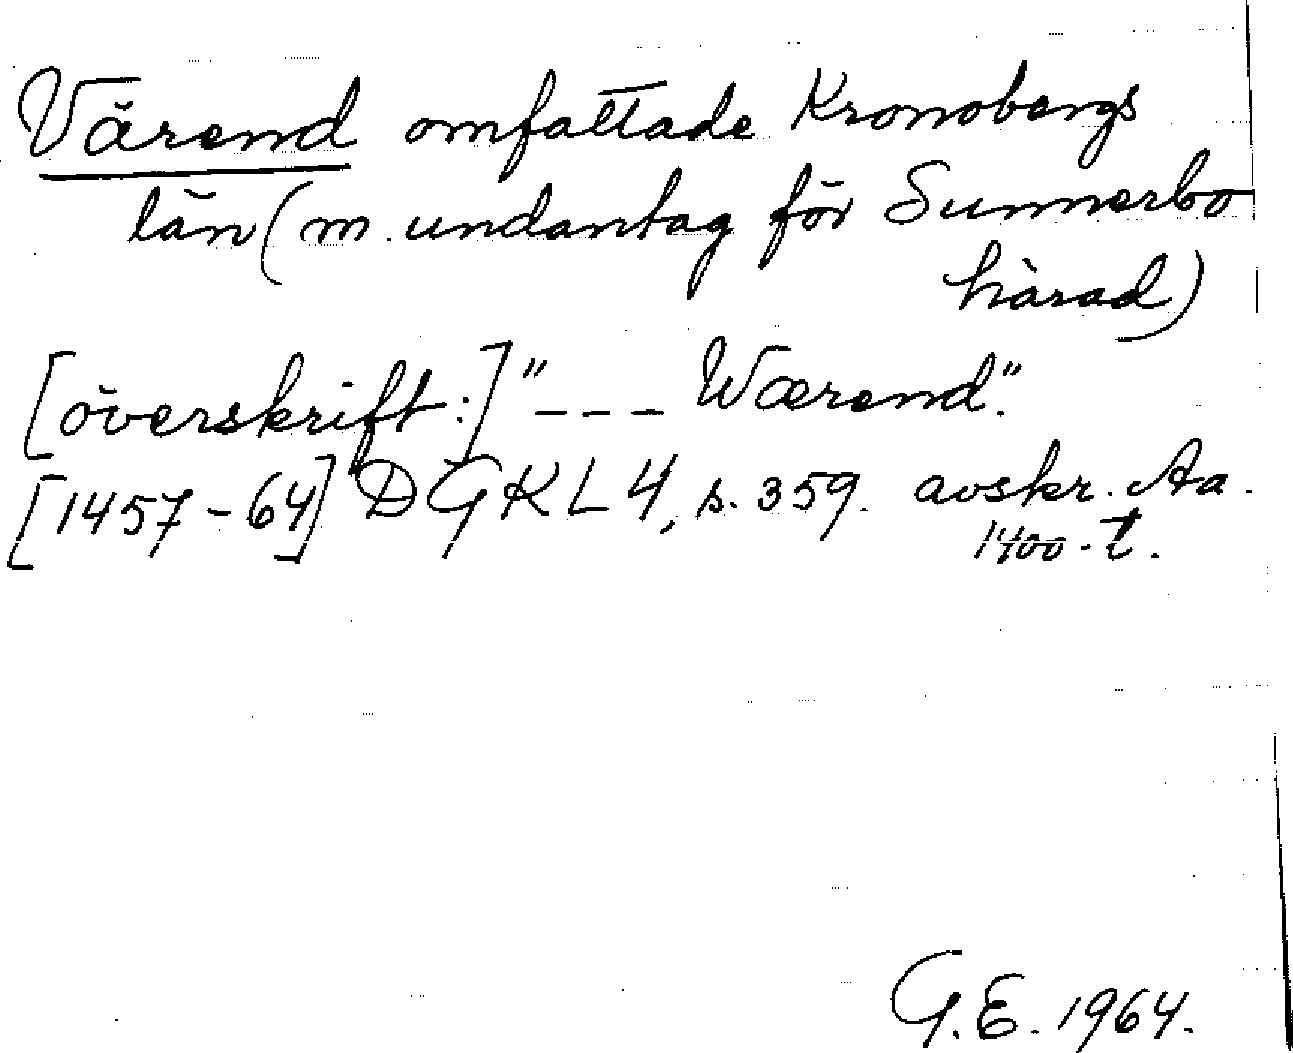 Värend omfattade Kronobergs
län (m. undantag för Sunnerbo
härad)
[överskrift:] "--- Wærend".
[1457-64] DGKL 4, s. 359. avskr. Aa.
1400-t.
G.E. 1964.